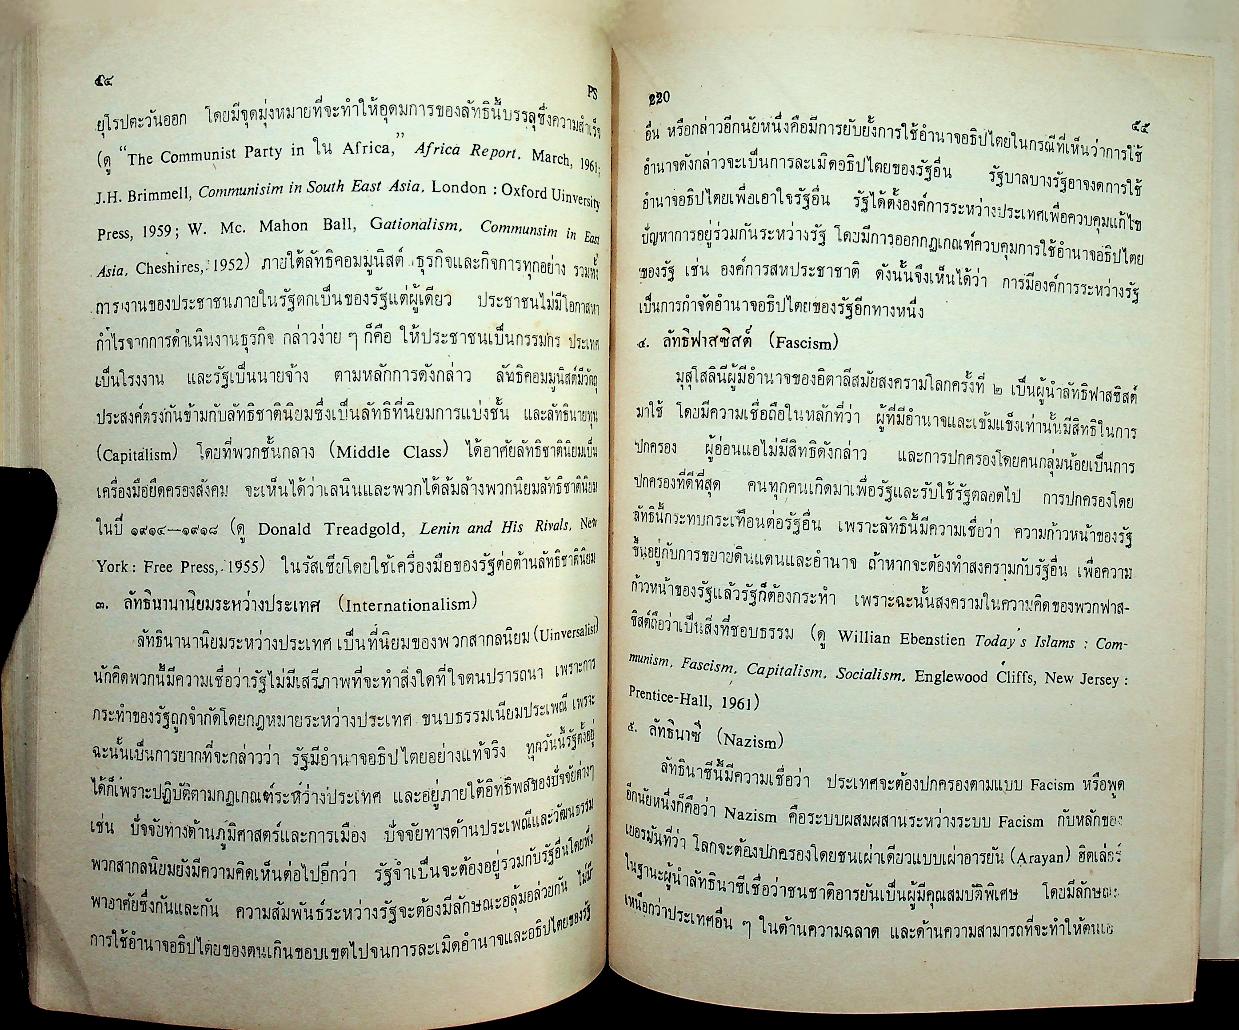 ๕๔
PS
ยุโรปตะวันออก โดยมีจุดมุ่งหมายที่จะทำให้อุดมการของลัทธินี้บรรลุซึ่งความสำเร็จ
(ดู “The Communist Party in ใน Africa,” Africa Report. March, 1961;
J.H. Brimmell, Communisim in South East Asia. London : Oxford Uinversity
Press, 1959; W. Mc. Mahon Ball, Gationalism. Communsim in East
Asia, Cheshires, 1952) ภายใต้ลัทธิคอมมูนิสต์ ธุรกิจและกิจการทุกอย่าง รวมทั้ง
การงานของประชาชนภายในรัฐตกเป็นของรัฐแต่ผู้เดียว ประชาชนไม่มีโอกาสหา
กำไรจากการดำเนินงานธุรกิจ กล่าวง่าย ๆ ก็คือ ให้ประชาชนเป็นกรรมกร ประเทศ
เป็นโรงงาน และรัฐเป็นนายจ้าง ตามหลักการดังกล่าว ลัทธิคอมมูนิสต์มีวัตถุ
ประสงค์ตรงกันข้ามกับลัทธิชาตินิยมซึ่งเป็นลัทธิที่นิยมการแบ่งชั้น และลัทธินายทุน
(Capitalism) โดยที่พวกชั้นกลาง (Middle Class) ได้อาศัยลัทธิชาตินิยมเป็น
เครื่องมือยึดครองสังคม จะเห็นได้ว่าเลนินและพวกได้ล้มล้างพวกนิยมลัทธิชาตินิยม
ในปี ๑๙๑๔—๑๙๑๘ (ดู Donald Treadgold, Lenin and His Rivals. New
York : Free Press, 1955) ในรัสเซียโดยใช้เครื่องมือของรัฐต่อต้านลัทธิชาตินิยม
๓. ลัทธินานานิยมระหว่างประเทศ (Internationalism)
ลัทธินานานิยมระหว่างประเทศ เป็นที่นิยมของพวกสากลนิยม (Uinversalist)
นักคิดพวกนี้มีความเชื่อว่ารัฐไม่มีเสรีภาพที่จะทำสิ่งใดที่ใจตนปรารถนา เพราะการ
กระทำของรัฐถูกจำกัดโดยกฎหมายระหว่างประเทศ ขนบธรรมเนียมประเพณี เพราะ
ฉะนั้นเป็นการยากที่จะกล่าวว่า รัฐมีอำนาจอธิปไตยอย่างแท้จริง ทุกวันนี้รัฐตั้งอยู่
ได้ก็เพราะปฏิบัติตามกฎเกณฑ์ระหว่างประเทศ และอยู่ภายใต้อิทธิพลของปัจจัยต่างๆ
เช่น ปัจจัยทางด้านภูมิศาสตร์และการเมือง ปัจจัยทางด้านประเพณีและวัฒนธรรม
พวกสากลนิยมยังมีความคิดเห็นต่อไปอีกว่า รัฐจำเป็นจะต้องอยู่ร่วมกับรัฐอื่นโดยพึ่ง
พาอาศัยซึ่งกันและกัน ความสัมพันธ์ระหว่างรัฐจะต้องมีลักษณะอลุ้มอล่วยกัน ไม่มี
การใช้อำนาจอธิปไตยของตนเกินขอบเขตไปจนการละเมิดอำนาจและอธิปไตยของรัฐ
220
๕๕
อื่น หรือกล่าวอีกนัยหนึ่งคือมีการยับยั้งการใช้อำนาจอธิปไตยในกรณีที่เห็นว่าการใช้
อำนาจดังกล่าวจะเป็นการละเมิดอธิปไตยของรัฐอื่น รัฐบาลบางรัฐอาจงดการใช้
อำนาจอธิปไตยเพื่อเอาใจรัฐอื่น รัฐได้ตั้งองค์การระหว่างประเทศเพื่อควบคุมแก้ไข
ปัญหาการอยู่ร่วมกันระหว่างรัฐ โดยมีการออกกฎเกณฑ์ควบคุมการใช้อำนาจอธิปไตย
ของรัฐ เช่น องค์การสหประชาชาติ ดังนั้นจึงเห็นได้ว่า การมีองค์การระหว่างรัฐ
เป็นการกำจัดอำนาจอธิปไตยของรัฐอีกทางหนึ่ง
๔. ลัทธิฟาสซิสต์ (Fascism)
มุสโสลินีผู้มีอำนาจของอิตาลีสมัยสงครามโลกครั้งที่ ๒ เป็นผู้นำลัทธิฟาสซิสต์
มาใช้ โดยมีความเชื่อถือในหลักที่ว่า ผู้ที่มีอำนาจและเข้มแข็งเท่านั้นมีสิทธิในการ
ปกครอง ผู้อ่อนแอไม่มีสิทธิดังกล่าว และการปกครองโดยคนกลุ่มน้อยเป็นการ
ปกครองที่ดีที่สุด คนทุกคนเกิดมาเพื่อรัฐและรับใช้รัฐตลอดไป การปกครองโดย
ลัทธินี้กระทบกระเทือนต่อรัฐอื่น เพราะลัทธินี้มีความเชื่อว่า ความก้าวหน้าของรัฐ
ขึ้นอยู่กับการขยายดินแดนและอำนาจ ถ้าหากจะต้องทำสงครามกับรัฐอื่น เพื่อความ
ก้าวหน้าของรัฐแล้วรัฐก็ต้องกระทำ เพราะฉะนั้นสงครามในความคิดของพวกฟาส-
ซิสต์ถือว่าเป็นสิ่งที่ชอบธรรม (ดู Willian Ebenstien Today's Islams : Com-
munism, Fascism. Capitalism. Socialism. Englewood Cliffs, New Jersey :
Prentice-Hall, 1961)
๕. ลัทธินาซี (Nazism)
ลัทธินาซีนี้มีความเชื่อว่า ประเทศจะต้องปกครองตามแบบ Facism หรือพูด
อีกนัยหนึ่งก็คือว่า Nazism คือระบบผสมผสานระหว่างระบบ Facism กับหลักของ
เยอรมันที่ว่า โลกจะต้องปกครองโดยชนเผ่าเดียวแบบเผ่าอารยัน (Arayan) ฮิตเล่อร์
ในฐานะผู้นำลัทธินาซีเชื่อว่าชนชาติอารยันเป็นผู้มีคุณสมบัติพิเศษ โดยมีลักษณะ
เหนือกว่าประเทศอื่น ๆ ในด้านความฉลาด และด้านความสามารถที่จะทำให้ตนเอ